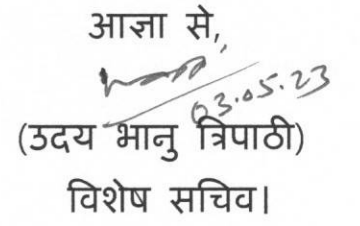 आज्ञा से,
03.05.23
(उदय भानु त्रिपाठी)
विशेष सचिव।